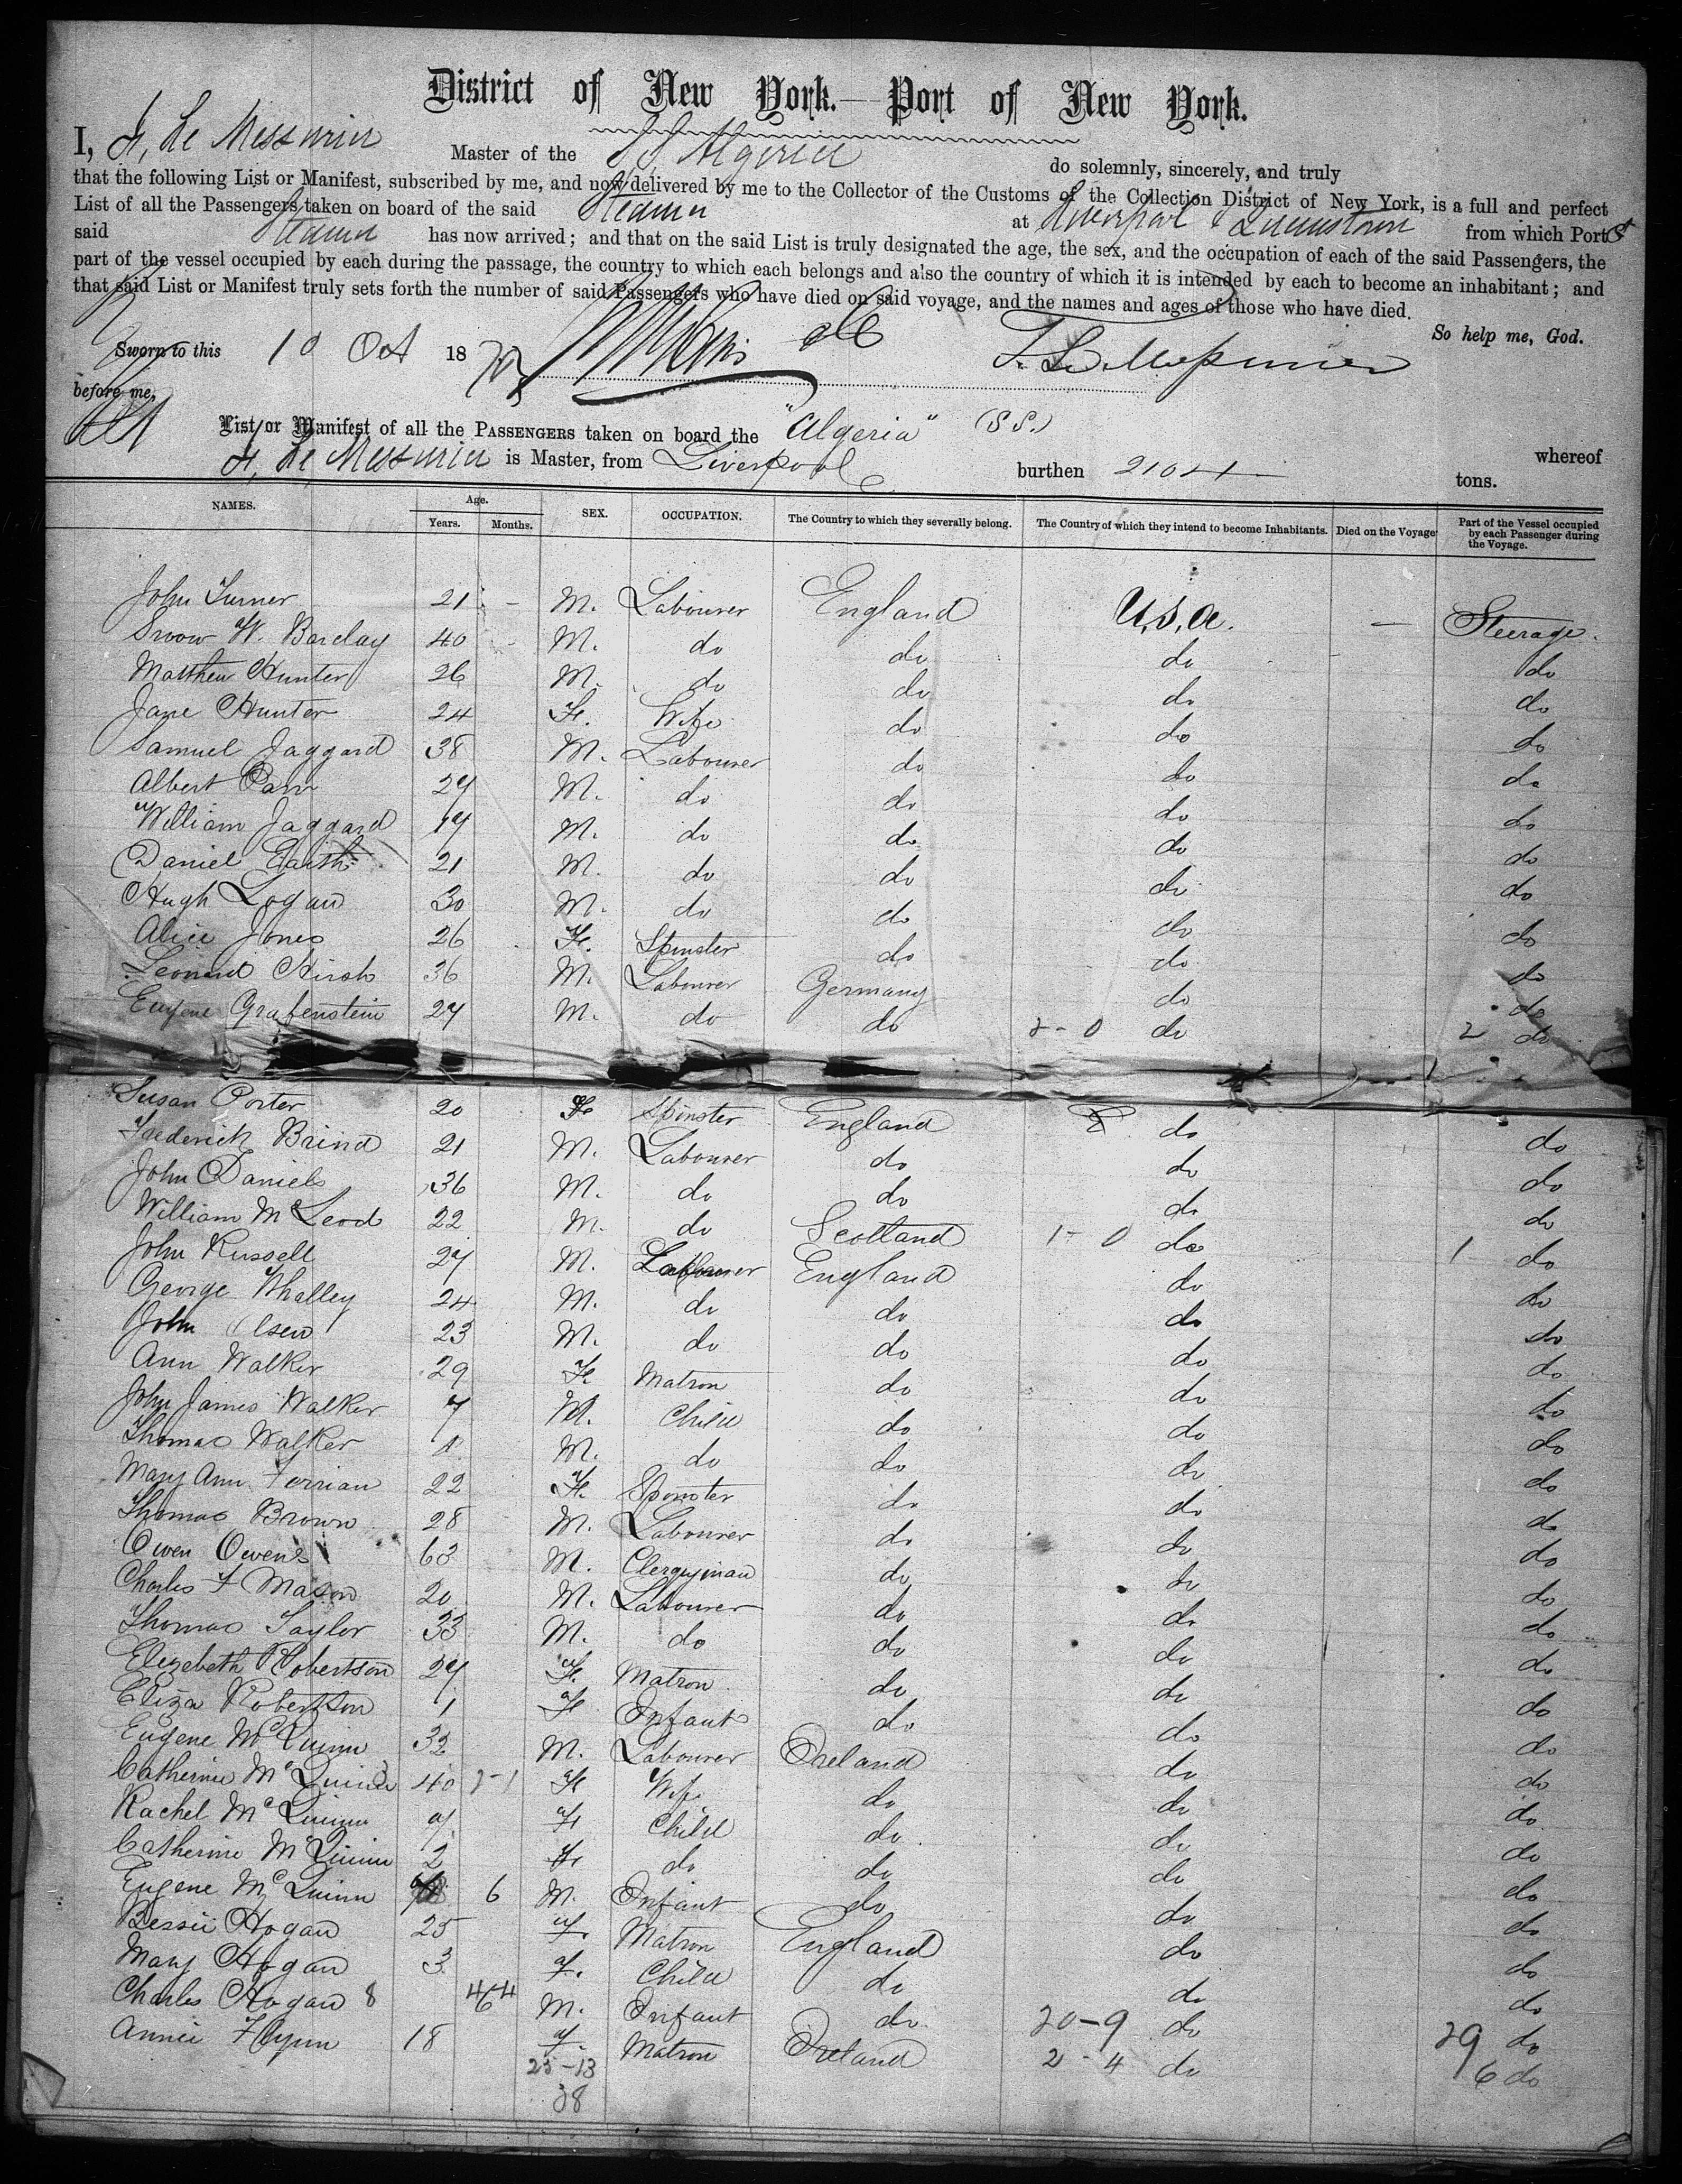 District of New York.—Port of New York.
I, F. Le Messurier Master of the SS Algeria do solemnly, sincerely, and truly
that the following List or Manifest, subscribed by me, and now delivered by me to the Collector of the Customs of the Collection District of New York, is a full and perfect
List of all the Passengers taken on board of the said Steamer at Liverpool & Queenstown from which Port
said Steamer has now arrived; and that on the said List is truly designated the age, the sex, and the occupation of each of the said Passengers, the
part of the vessel occupied by each during the passage, the country to which each belongs and also the country of which it is intended by each to become an inhabitant; and
that said List or Manifest truly sets forth the number of said Passengers who have died on said voyage, and the names and ages of those who have died.
So help me, God.
Sworn to this 10 Oct 18 F. Le Messurier
before me,
List or Manifest of all the PASSENGERS taken on board the "Algeria" (SS.) whereof
F. Le Messurier is Master, from Liverpool burthen 2104 tons.
NAMES. Age. Years. Months. SEX. OCCUPATION. The Country to which they severally belong. The Country of which they intend to become Inhabitants. Died on the Voyage Part of the Vessel occupied by each Passenger during the Voyage.
John Turner 21 - M. Labourer England U.S.A. — Steerage.
W. Barclay 40 - M. do do do do
Matthew Hunter 26 M. do do do do
Jane Hunter 24 Fe. Wife do do do
Samuel Jaggard 38 M. Labourer do do do
Albert Parr 27 M. do do do do
William Jaggard 19 M. do do do do
Daniel 21 M. do do do do
Hugh Logan 30 M. do do do do
Alice Jones 26 Fe. Spinster do do do
Leonard Hirsh 36 M. Labourer Germany do do
Eugene Grafenstein 27 M. do do 2-0 do 2 do
Susan Porter 20 Fe Spinster England do do
Frederick Brind 21 M. Labourer do do do
John Daniels 36 M. do do do do
William McLeod 22 M. do Scotland 1-0 do 1 do
John Russell 27 M. Labourer England do do
George Whalley 24 M. do do do do
John Olsen 23 M. do do do do
Ann Walker 29 Fe Matron do do do
John James Walker 7 M. Child do do do
Thomas Walker M. do do do do
Mary Ann 22 Fe. Spinster do do do
Thomas Brown 28 M. Labourer do do do
Owen Owens 63 M. Clergyman do do do
Charles F Mason 20 M. Labourer do do do
Thomas Taylor 33 M. do do do do
Elizabeth Robertson 27 Fe. Matron do do do
Eliza Robertson 1 Fe Infant do do do
Eugene McQuinn 32 M. Labourer Ireland do do
Catherine McQuinn 40 2-1 Fe Wife do do do
Rachel McQuinn Fe Child do do do
Catherine McQuinn 2 Fe do do do do
Eugene McQuinn 6 M. Infant do do do
Bessie Hogan 25 F. Matron England do do
Mary Hogan 3 F. Child do do do
Charles Hogan 8 M. Infant do 20-9 do 29 do
Annie Flynn 18 F. Matron Ireland 2-4 do 6 do
25-13
38